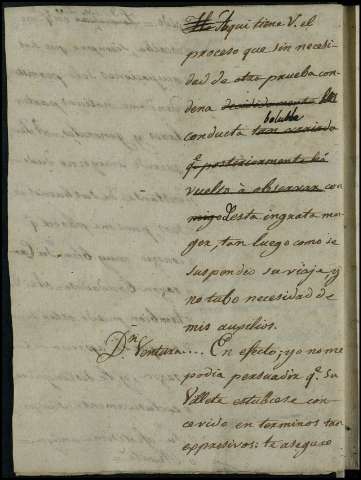 Aqui tiene V. el
proceso que sin necesi-
dad de otra prueba con-
dena decididamente la
boluble
conducta tan
q.e posteriormente há
vuelto à observar con-
migo Desta ingrata mu-
ger, tan luego como se
suspendió su viaje, y
no tubo necesidad de
mis auxilios.
D.n Ventura.... En efecto; yo no me
podía persuadir q.e su
Villete estubiese con-
cevido en terminos tan
expresivos: te aseguro